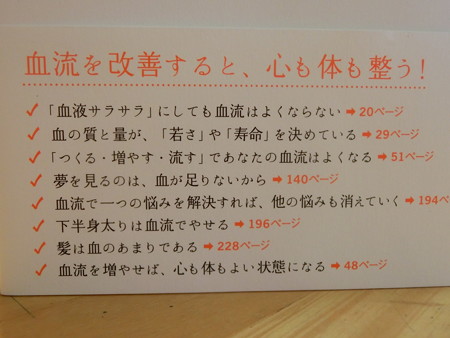 血流を改善すると、心も体も整う!
✓ 「血液サラサラ」にしても血流はよくならない ➡ 20ページ
✓ 血の質と量が、「若さ」や「寿命」を決めている ➡ 29ページ
✓ 「つくる・増やす・流す」であなたの血流はよくなる ➡ 51ページ
✓ 夢を見るのは、血が足りないから ➡ 140ページ
✓ 血流で一つの悩みを解決すれば、他の悩みも消えていく ➡ 194ペ
✓ 下半身太りは血流でやせる ➡ 196ページ
✓ 髪は血のあまりである ➡ 228ページ
✓ 血流を増やせば、心も体もよい状態になる ➡ 48ページ